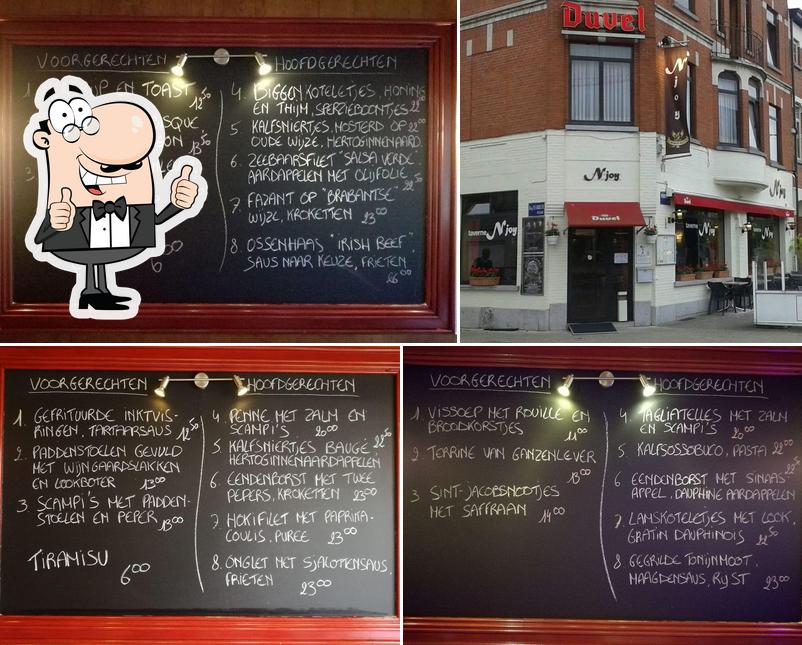 VOORGERECHTEN
UP EN TOAST
12 50
SQUE
ON
13 50
6 00
HOOFDGERECHTEN
4. BIGGENKOTELETJES, HONING
EN THIJM, SPERZIEBOONTJES
5. KALFSNIERTJES, MOSTERD OP
OUDE WIJZE, HERTOGINNENAARD.
6. ZEEBAARSFILET "SALSA VERDE"
AARDAPPELEN MET OLIJFOLIE
7. FAZANT OP "BRABANTSE"
WIJZE, KROKETTEN 23 00
8 OSSENHAAS "IRISH BEEF"
SAUS NAAR KEUZE, FRIETEN
26 00
Duvel
N joy
N joy
Duvel
taverne N joy
N joy
VOORGERECHTEN
1. GEFRITUURDE INKTVIS-
RINGEN, TARTAARSAUS 12 50
2. PADDENSTOELEN GEVULD
MET WIJNGAARDSLAKKEN
EN LOOKBOTER 13 00
3. SCAMPI'S MET PADDEN-
STOELEN EN PEPER 13 00
TIRAMISU
6 00
HOOFDGERECHTEN
4. PENNE MET ZALM EN
SCAMPI'S 20 00
5. KALFSNIERTJES BAUGÉ, 22 50
HERTOGINNENAARDAPPELEN
6. EENDENBORST MET TWEE
PEPERS, KROKETTEN 23 00
7. HOKIFILET MET PAPRIKA-
COULIS, PUREE 23 00
8. ONGLET MET SJALOTTENSAUS,
FRIETEN 23 00
VOORGERECHTEN
1. VISSOEP MET ROUILLE EN
BROODKORSTJES 11 00
2. TERRINE VAN GANZENLEVER
13 00
3. SINT-JACOBSNOOTJES
MET SAFFRAAN 14 00
HOOFDGERECHTEN
4. TAGLIATELLES MET ZALM
EN SCAMPI'S 20 00
5. KALFSOSSOBUCO, PASTA 22 50
6 EENDENBORST MET SINAAS-
APPEL, DAUPHINE AARDAPPELEN
7. LAMSKOTELETJES MET LOOK,
GRATIN DAUPHINOIS 22 50
8 GEGRILDE TONIJNMOOT,
MAAGDENSAUS, RIJST 23 00